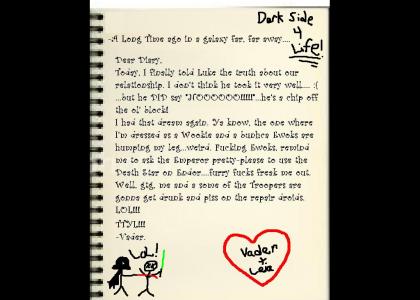 Dark Side
4
Life!
-A Long Time ago in a galaxy far, far away....
Dear Diary,
Today, I finally told Luke the truth about our
relationship. I don't think he took it very well.... :(
....but he DID say "NOOOOOO!!!!!"...he's a chip off
the ol' block!
I had that dream again. Ya know, the one where
I'm dressed as a Wookie and a bunhca Ewoks are
humping my leg...weird. Fucking Ewoks, remind
me to ask the Emperor pretty-please to use the
Death Star on Endor....furry fucks freak me out.
Well, gtg, me and a some of the Troopers are
gonna get drunk and piss on the repair droids.
LOL!!!
TTYL!!!
-Vader.
LoL!
Vader
+
Leia